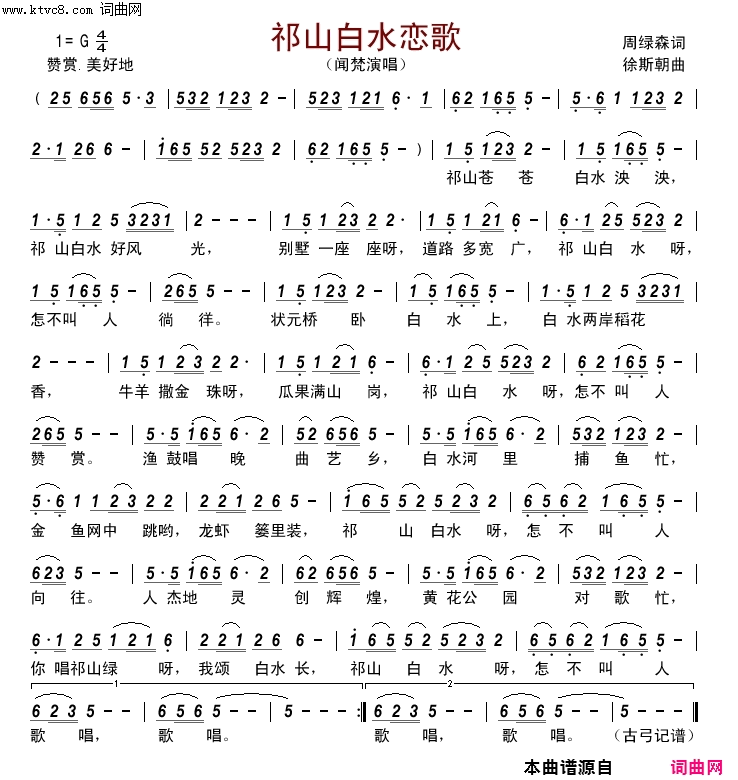 www.ktvc8.com 词曲网
1= G 4/4
祁山白水恋歌
周绿森词
赞赏.美好地
（闻梵演唱）
徐斯朝曲
( 25 656 5·3 | 532 123 2 - | 523 121 6· 1 | 62 165 5 - | 5·6 1 123 2 |
2·1 26 6 - | 165 52 523 2 | 62 165 5 - ) | 1 5 123 2 - | 1 5 165 5 - |
祁山苍 苍 白水 泱 泱,
1·5 1 2 5 3231 | 2 - - - | 1 5 1 23 2 2· | 1 5 1 21 6 - | 6·1 25 523 2 |
祁 山白水 好风 光, 别墅 一座 座呀, 道路 多宽 广, 祁 山白 水 呀,
1 5 165 5 - | 265 5 - - | 1 5 123 2 - | 1 5 165 5 - | 1·5 1 2 5 3231 |
怎不叫 人 徜 徉。 状元桥 卧 白 水 上, 白 水两岸稻花
2 - - - | 1 5 1 2 3 2 2· | 1 5 1 21 6 - | 6·1 2 5 523 2 | 1 5 165 5 |
香, 牛羊 撒金 珠呀, 瓜果满山 岗, 祁 山白 水 呀,怎不 叫 人
265 5 - - | 5·5 165 6·2 | 52 656 5 - | 5·5 165 6·2 | 532 123 2 - |
赞 赏。 渔 鼓唱 晚 曲 艺 乡, 白 水河 里 捕 鱼 忙,
5·6 1 1 2 3 2 2 | 2 21 2 6 6 - | 165 5 2 523 2 | 6 5 6 2 165 5 |
金 鱼网中 跳哟, 龙虾 篓里装, 祁 山 白水 呀,怎 不 叫 人
623 5 - - | 5·5 165 6·2 | 52 656 5 - | 5·5 165 6·2 | 532 123 2 - |
向 往。 人 杰地 灵 创 辉 煌, 黄 花公 园 对 歌 忙,
6·1 2 5 1 2 1 6 | 2 21 26 6 - | 165 5 2 5 23 2 | 6 5 6 2 1 6 5 5 |
你 唱祁山绿 呀, 我颂 白水 长, 祁山 白 水 呀,怎 不 叫 人
1 2
6 2 3 5 - | 6 2 5 6 5 - | 5 - - - :| 6 2 3 5 - | 6 2 5 6 5 - | 5 - - - ||
歌 唱, 歌 唱。 歌 唱, 歌 唱。 （古弓记谱）
本曲谱源自 词曲网